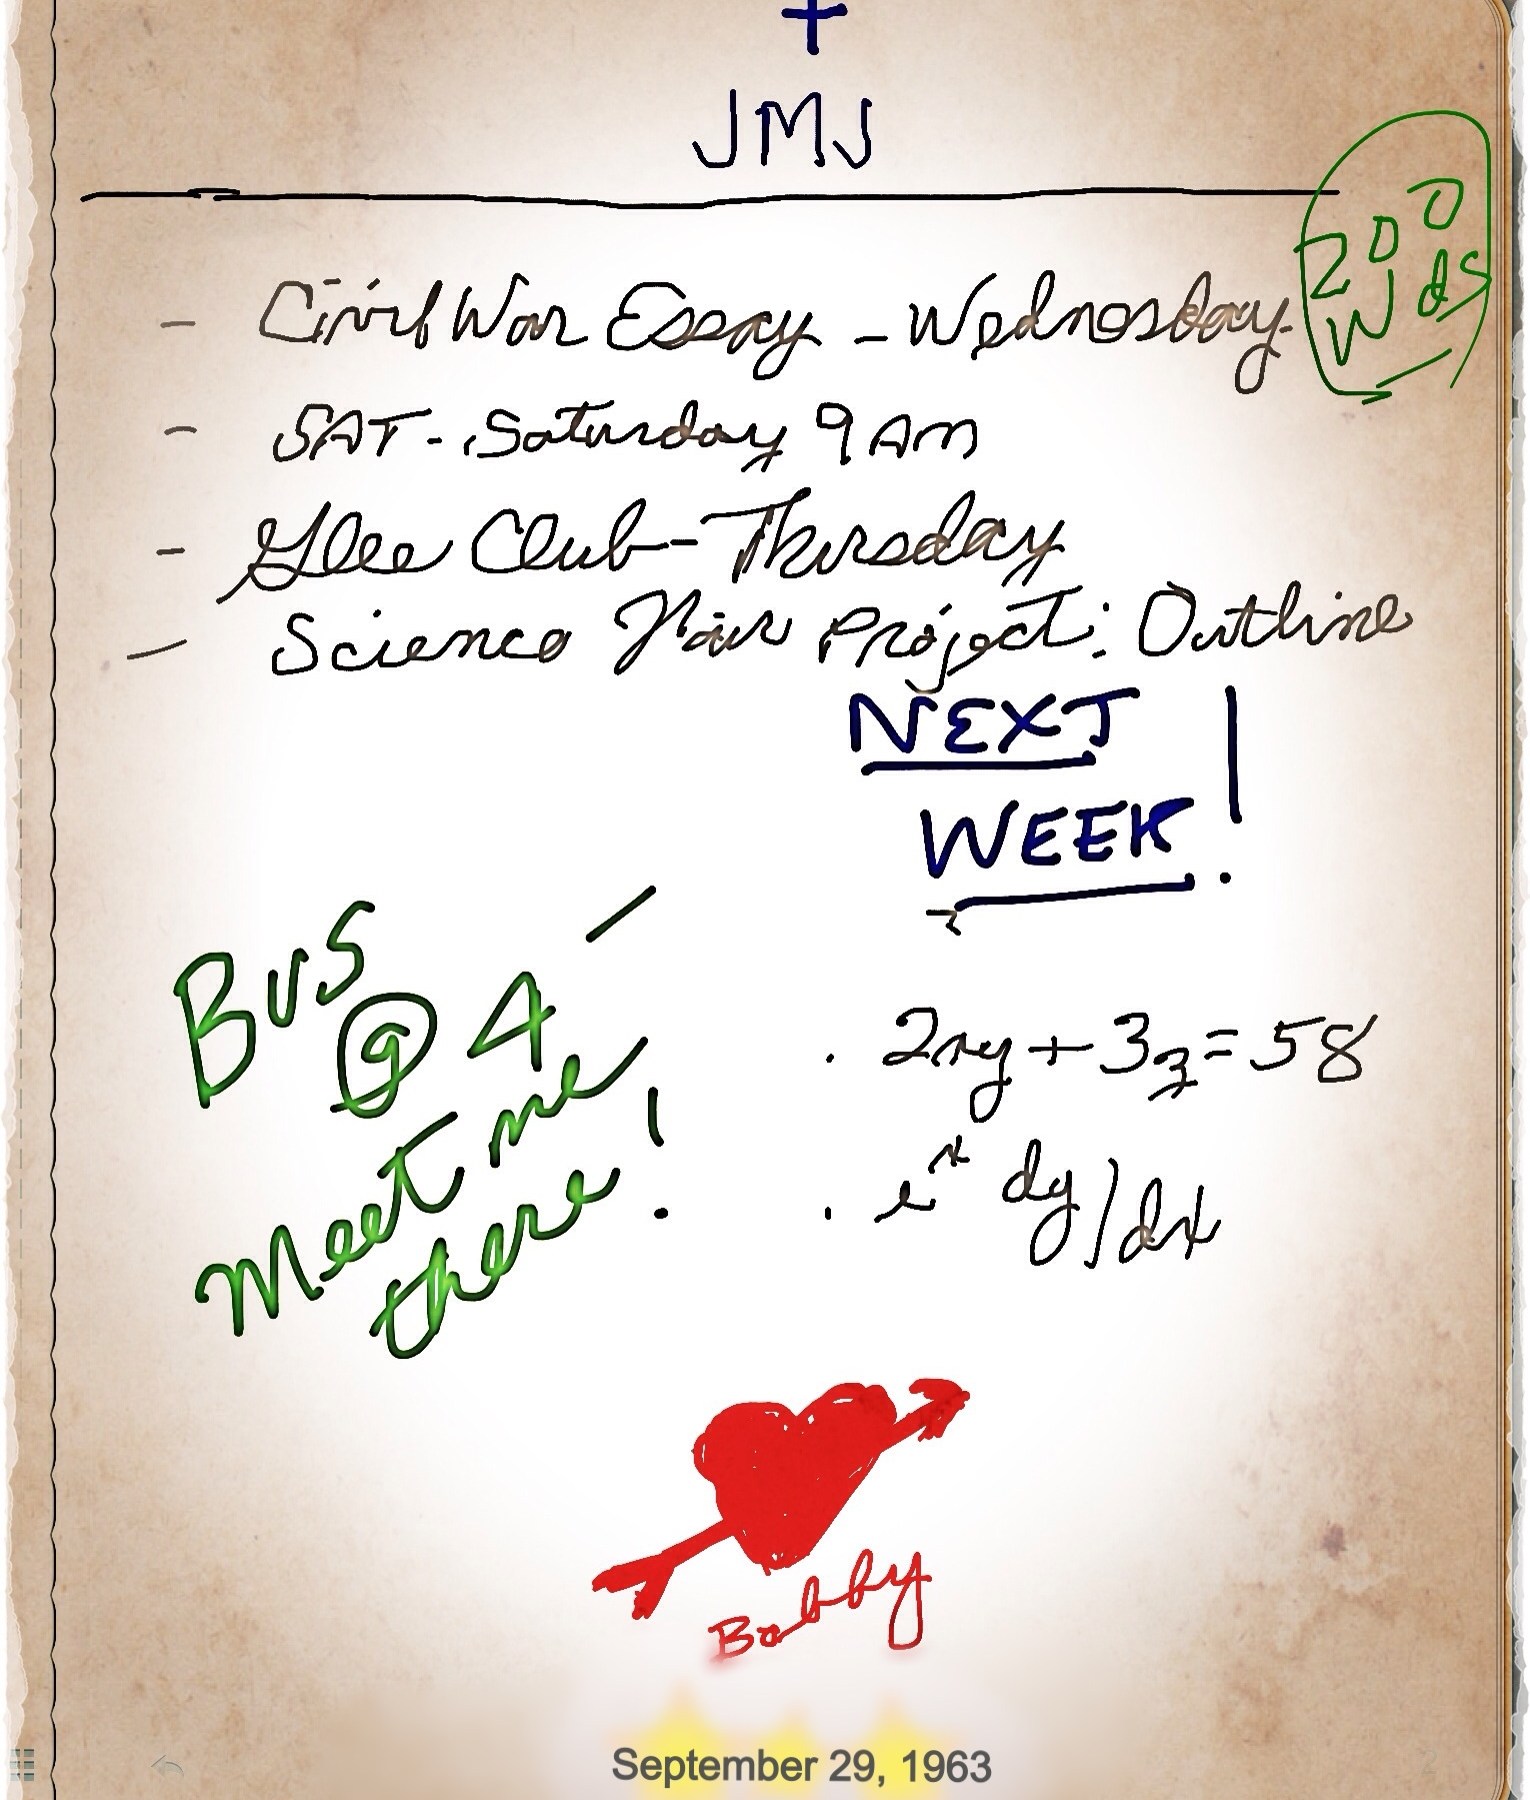 JMJ
- Civil War Essay - Wednesday
200
Wds
- SAT - Saturday 9 AM
- Glee Club - Thursday
- Science Fair Project: Outline
NEXT
WEEK!
Bus
@ 4 -
Meet me
there!
. 2xy + 3z = 58
. e^x dy/dx
Bobby
September 29, 1963
2